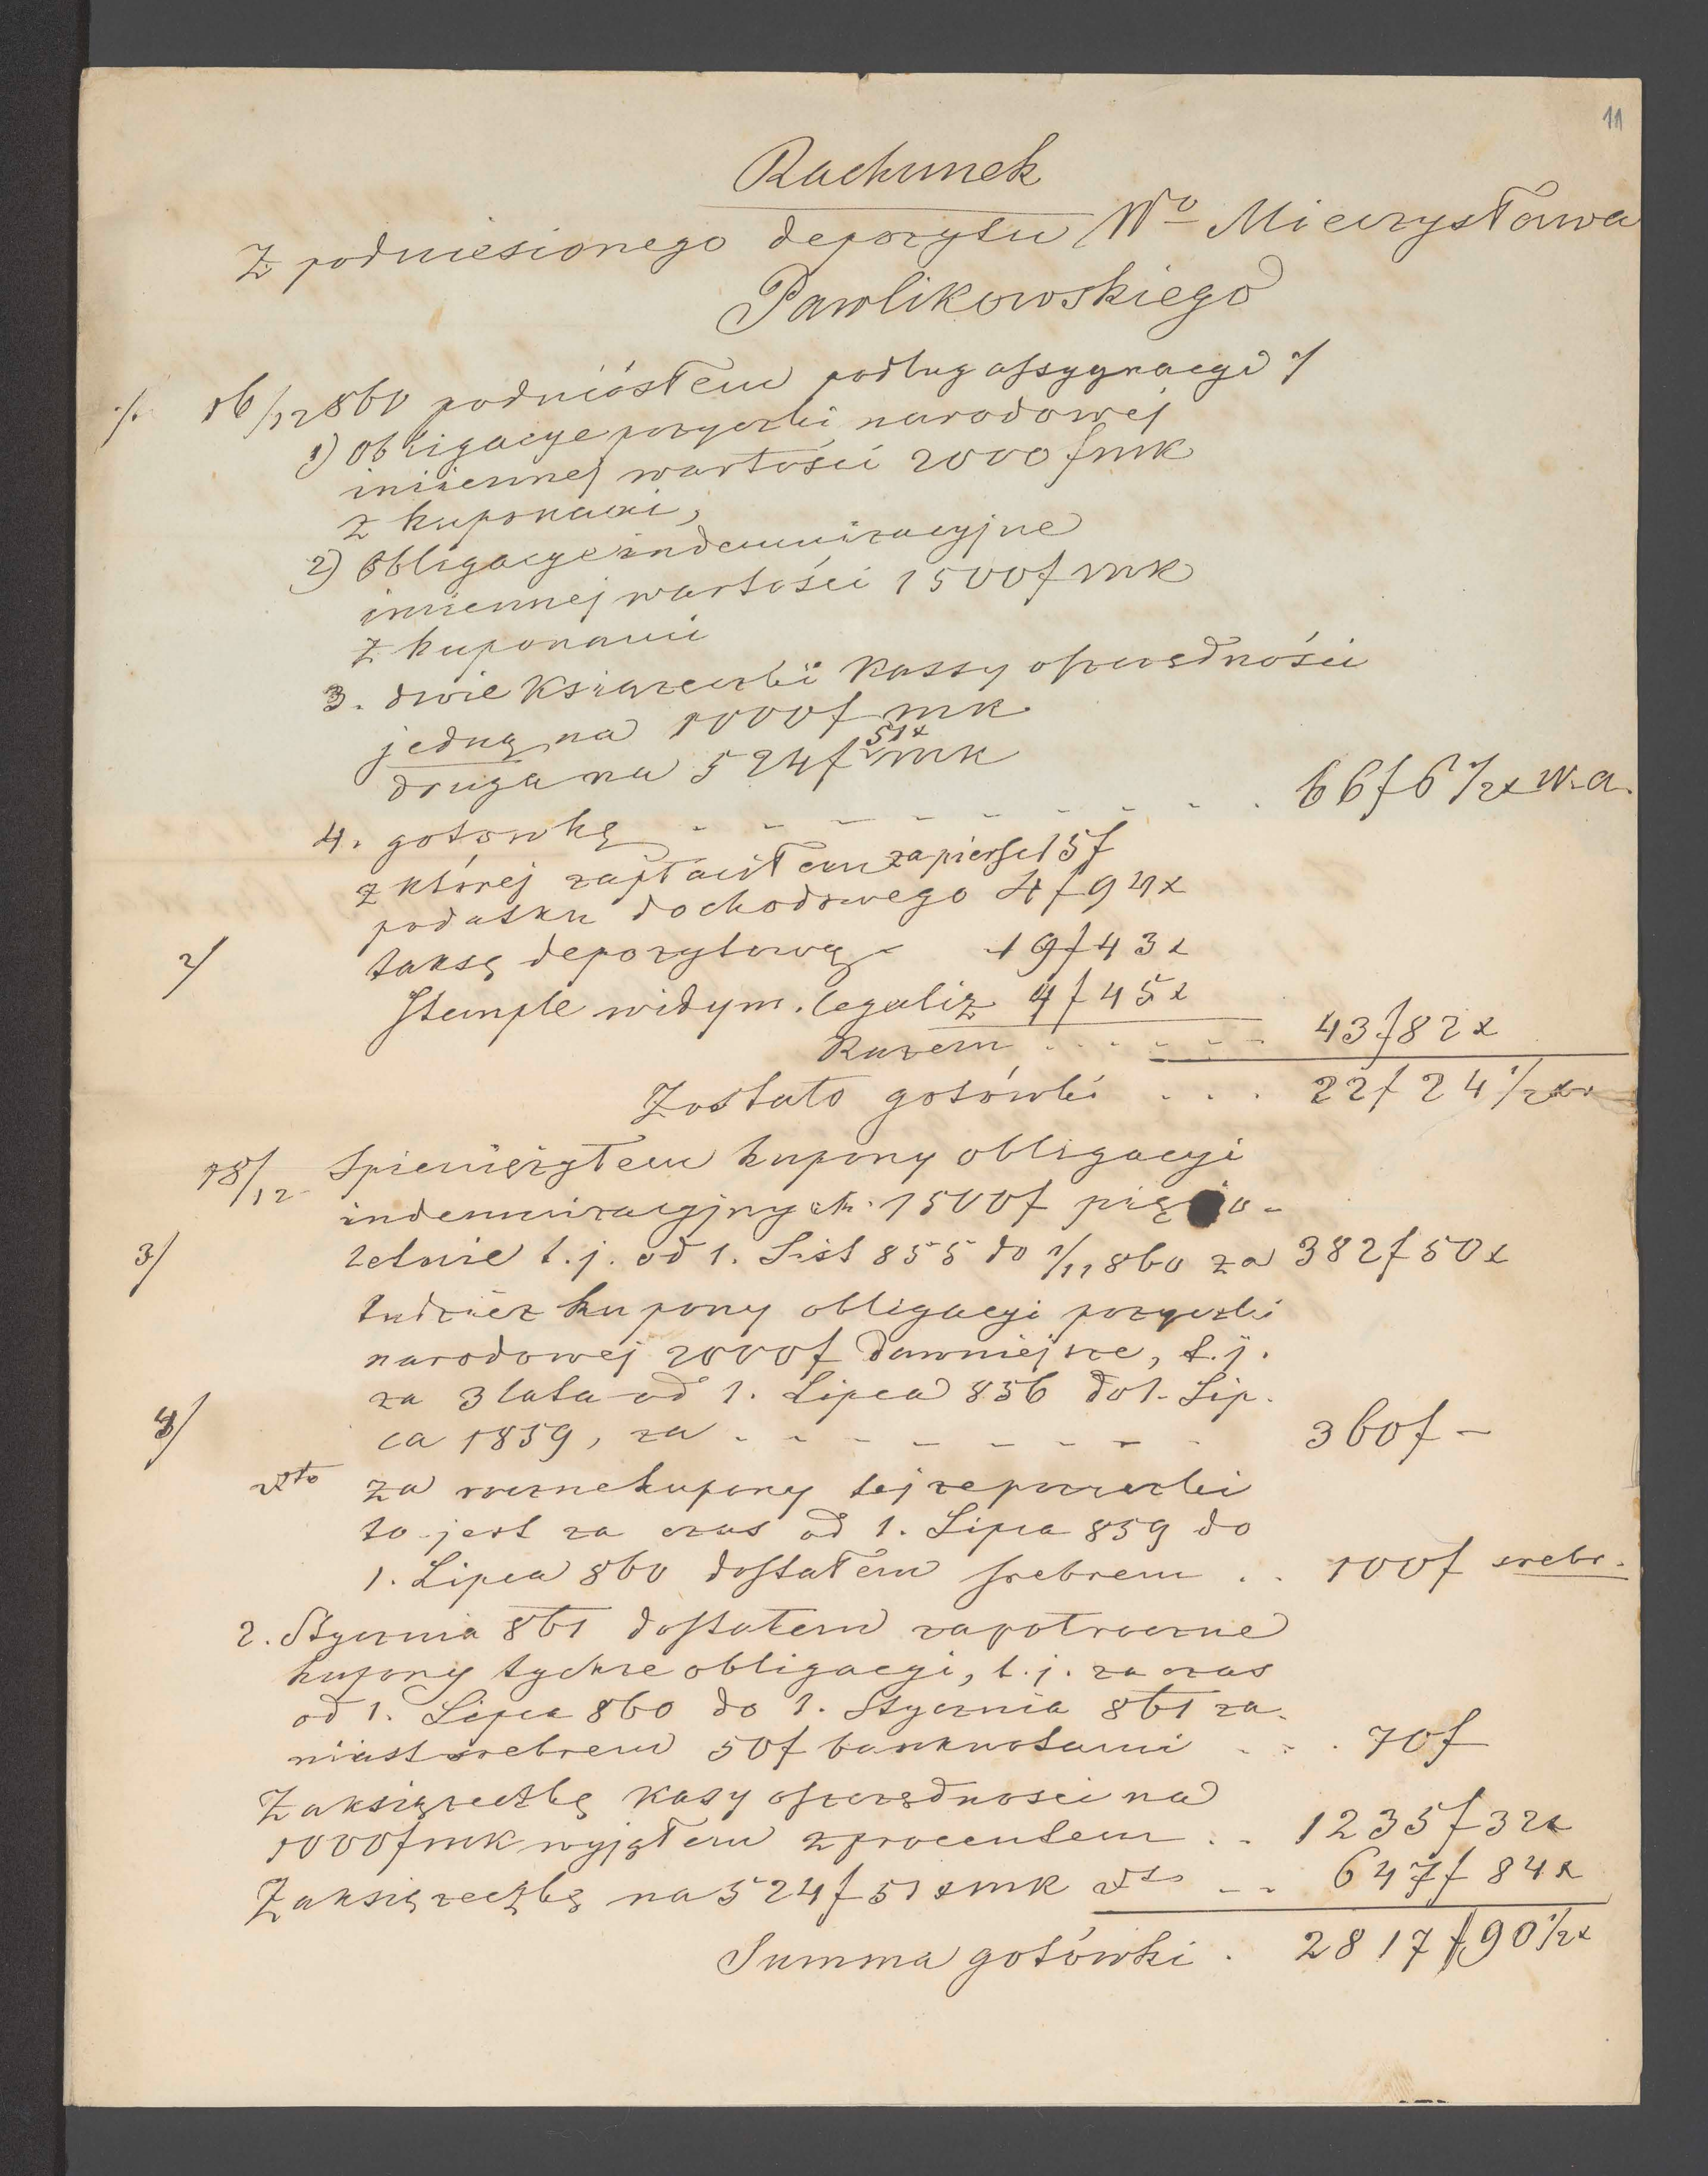 11
Rachunek
Z podniesionego depozytu Wo Mieczysława
Pawlikowskiego
1/. 16/12 860 podniósłem podług assygnacyi 1/
1) obligacye pożyczki narodowej
imiennej wartości 2000 f mk
z kuponami,
2) Obligacye indemnizacyjne
imiennej wartości 1500 f mk
z kuponami
3. dwie Książeczki Kassy oszczędności
jedną na 1000 f mk
51x
druga na 524 f mk
4. gotowkę - - - - - - - - 66 f 6 1/2 x w. a.
z której zapłaciłem za pierwsze 15 f
podatku dochodowego 4 f 94 x
2/ taksę depozytową - 19 f 43 x
Stemple widym. legaliz 4 f 45 x
Razem . . . - - - 43 f 82 x
Zostało gotówki . . . 22 f 24 1/2 x
18/12 Spieniężyłem kupony obligacyi
indemnizacyjnych 1500 f pięcio-
3/ letnie t. j. od 1. List 855 do 1/11 860 za 382 f 50 x
tudzież kupony obligacyi pożyczki
narodowej 2000 f dawniejsze, t. j.
za 3 lata od 1. Lipca 856 do 1. Lip.
4/ ca 1859, za - - - - - - - 360 f -
dto za roczne kupony tejże pożyczki
to jest za czas od 1. Lipca 859 do
1. Lipca 860 dostałem srebrem . . 100 f srebr.
2. Stycznia 861 dostałem za półroczne
kupony tychże obligacyi, t. j. za czas
od 1. Lipca 860 do 1. Stycznia 861 za-
miast srebrem 50 f banknotami - - . 70 f
Za książeczkę Kasy oszczędnosci na
1000 f mk wyjąłem z procentem . . 1235 f 32 x
Za książeczkę na 524 f 51 x mk dto - - 647 f 84 x
Summa gotówki . 2817 f 90 1/2 x